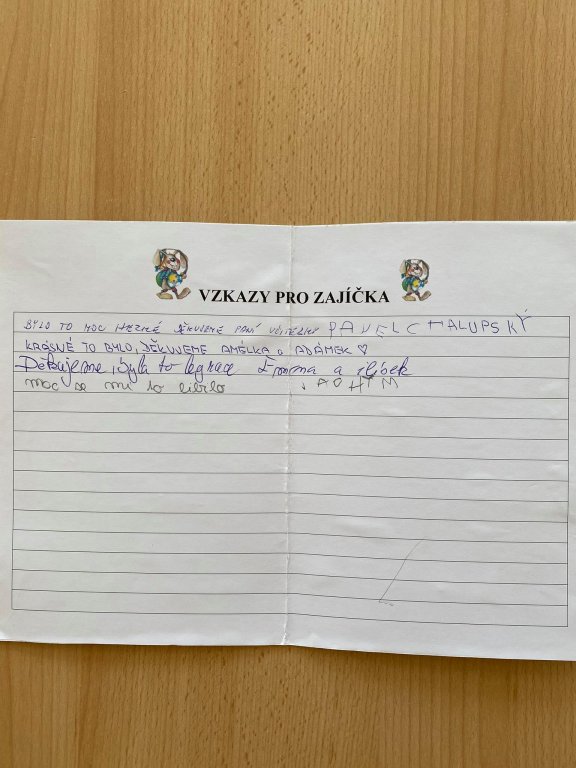 VZKAZY PRO ZAJÍČKA
BYLO TO MOC HEZKÉ DĚKUJEME PANÍ UČITELKY PAVEL CHALUPSKÝ
KRÁSNÉ TO BYLO, DĚKUJEME AMÉLKA a ADÁMEK ♡
Děkujeme, byla to legrace Emma a
moc se mi to libilo